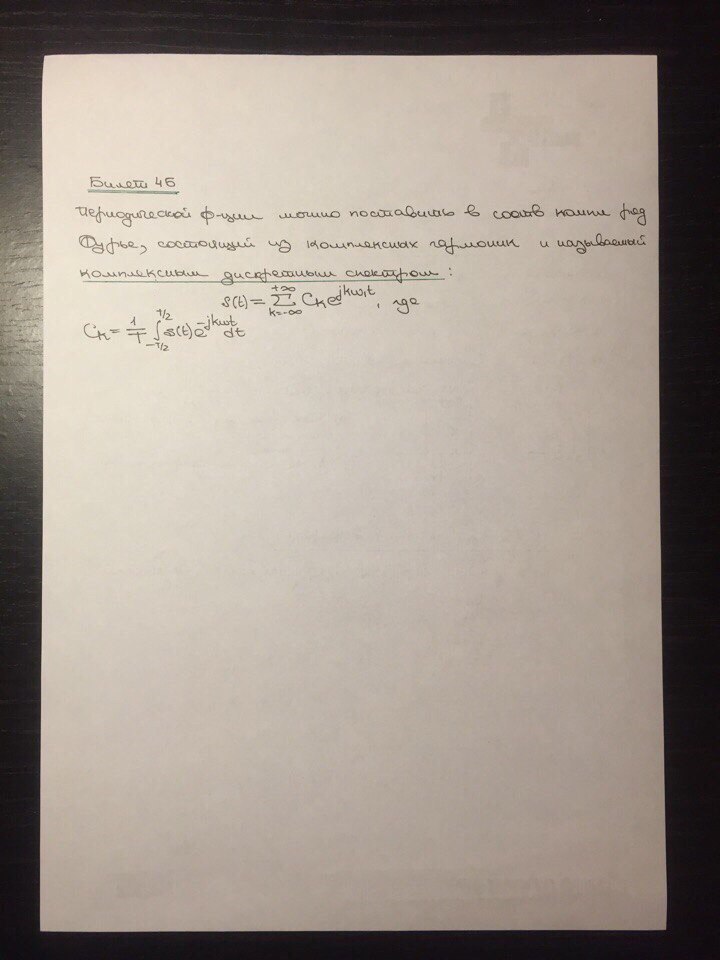 Билет 46
Периодической ф-ции можно поставить в соотв компл ряд
Фурье, состоящий из комплексных гармоник и называемый
комплексным дискретным спектром:
s(t) = ∑_{k=-∞}^{+∞} C_k e^{jkω₁t}, где
C_k = 1/T ∫_{-T/2}^{T/2} s(t) e^{-jkω₁t} dt